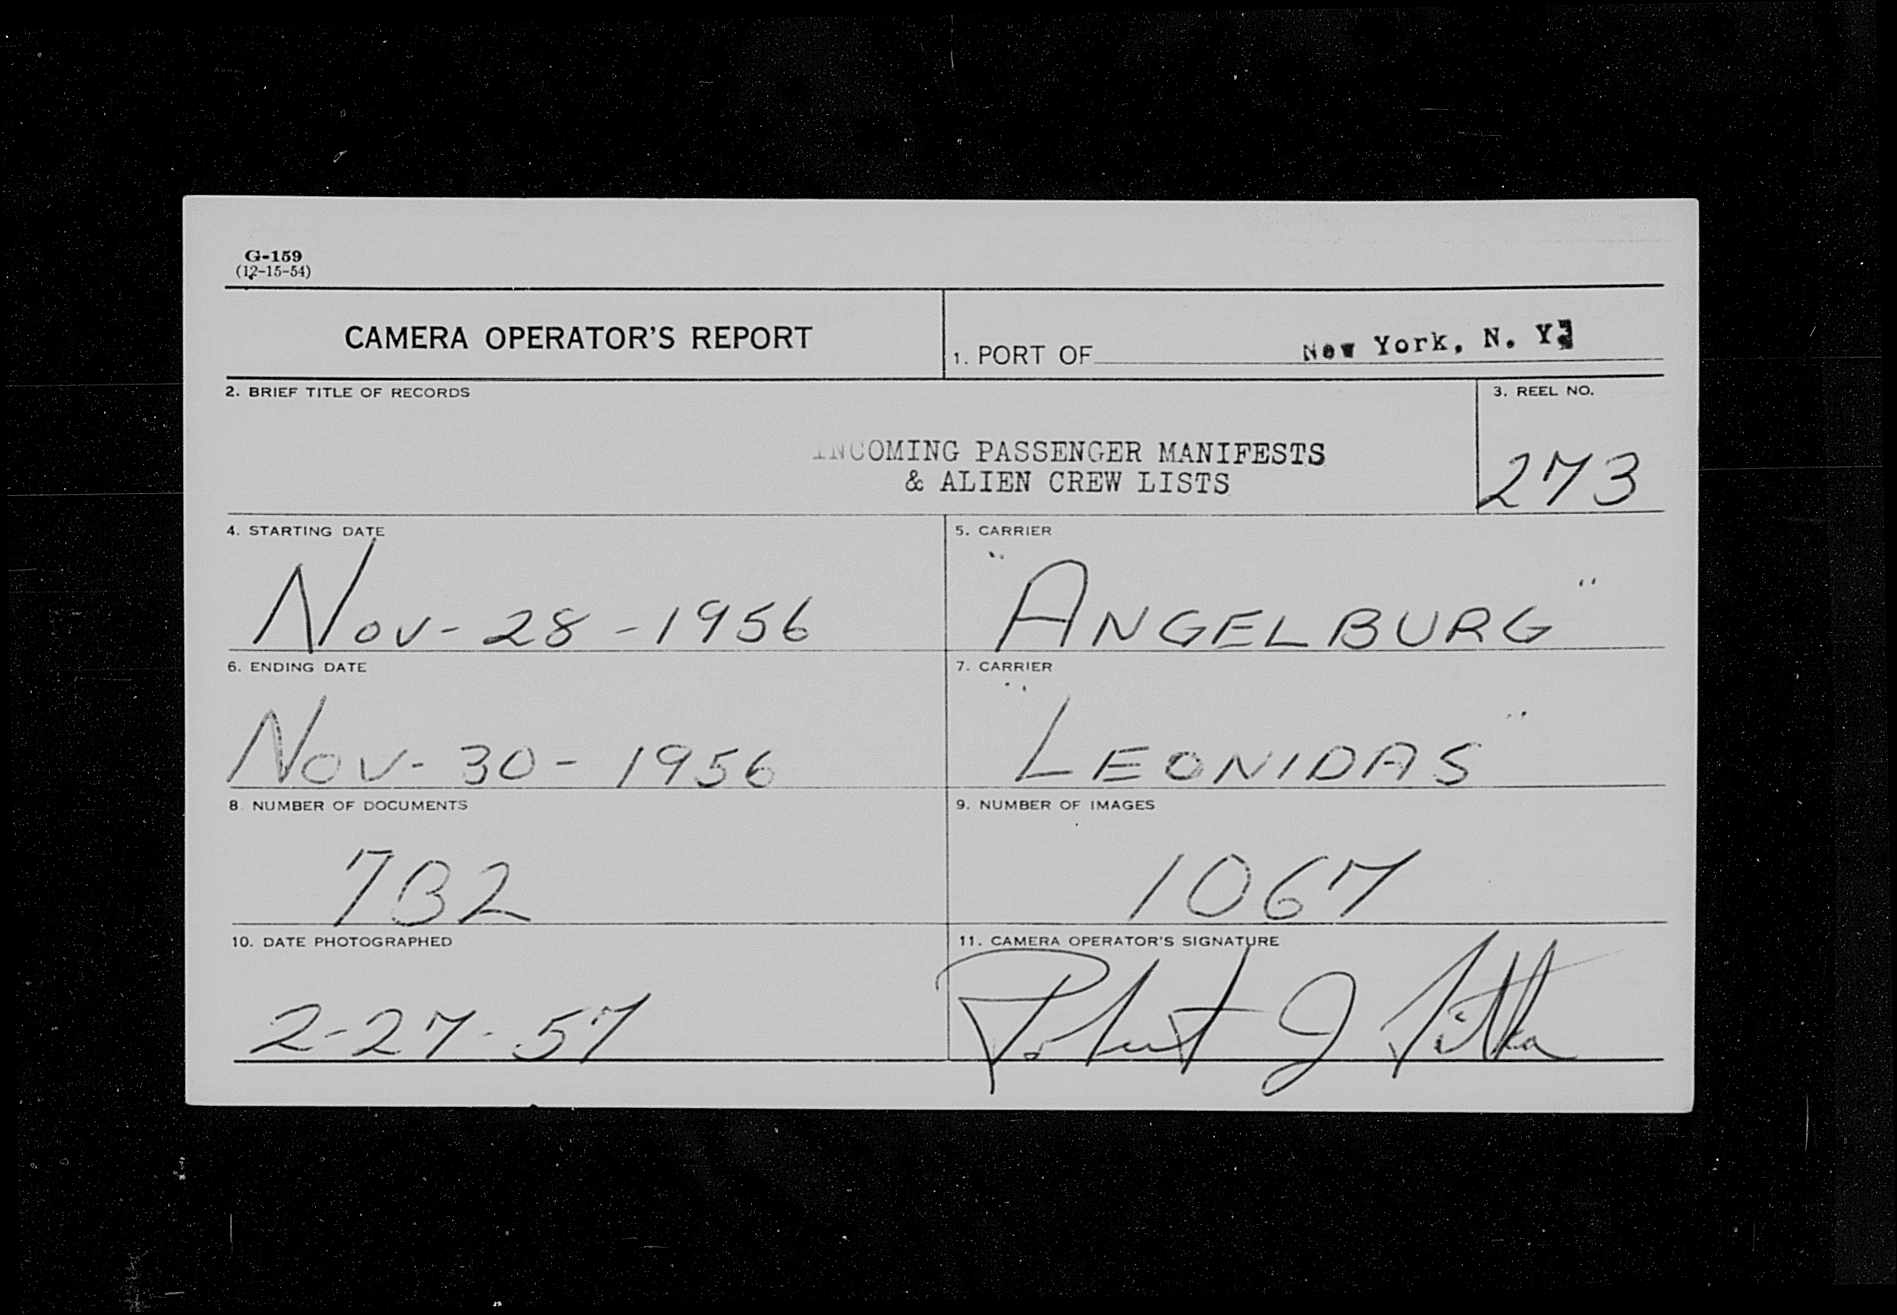 G-159
(12-15-54)
CAMERA OPERATOR'S REPORT
1. PORT OF New York, N. Y.
2. BRIEF TITLE OF RECORDS
3. REEL NO.
INCOMING PASSENGER MANIFESTS
& ALIEN CREW LISTS
273
4. STARTING DATE
5. CARRIER
Nov-28-1956
"ANGELBURG"
6. ENDING DATE
7. CARRIER
Nov-30-1956
"LEONIDAS"
8 NUMBER OF DOCUMENTS
9. NUMBER OF IMAGES
732
1067
10. DATE PHOTOGRAPHED
11. CAMERA OPERATOR'S SIGNATURE
2-27-57
Robert J